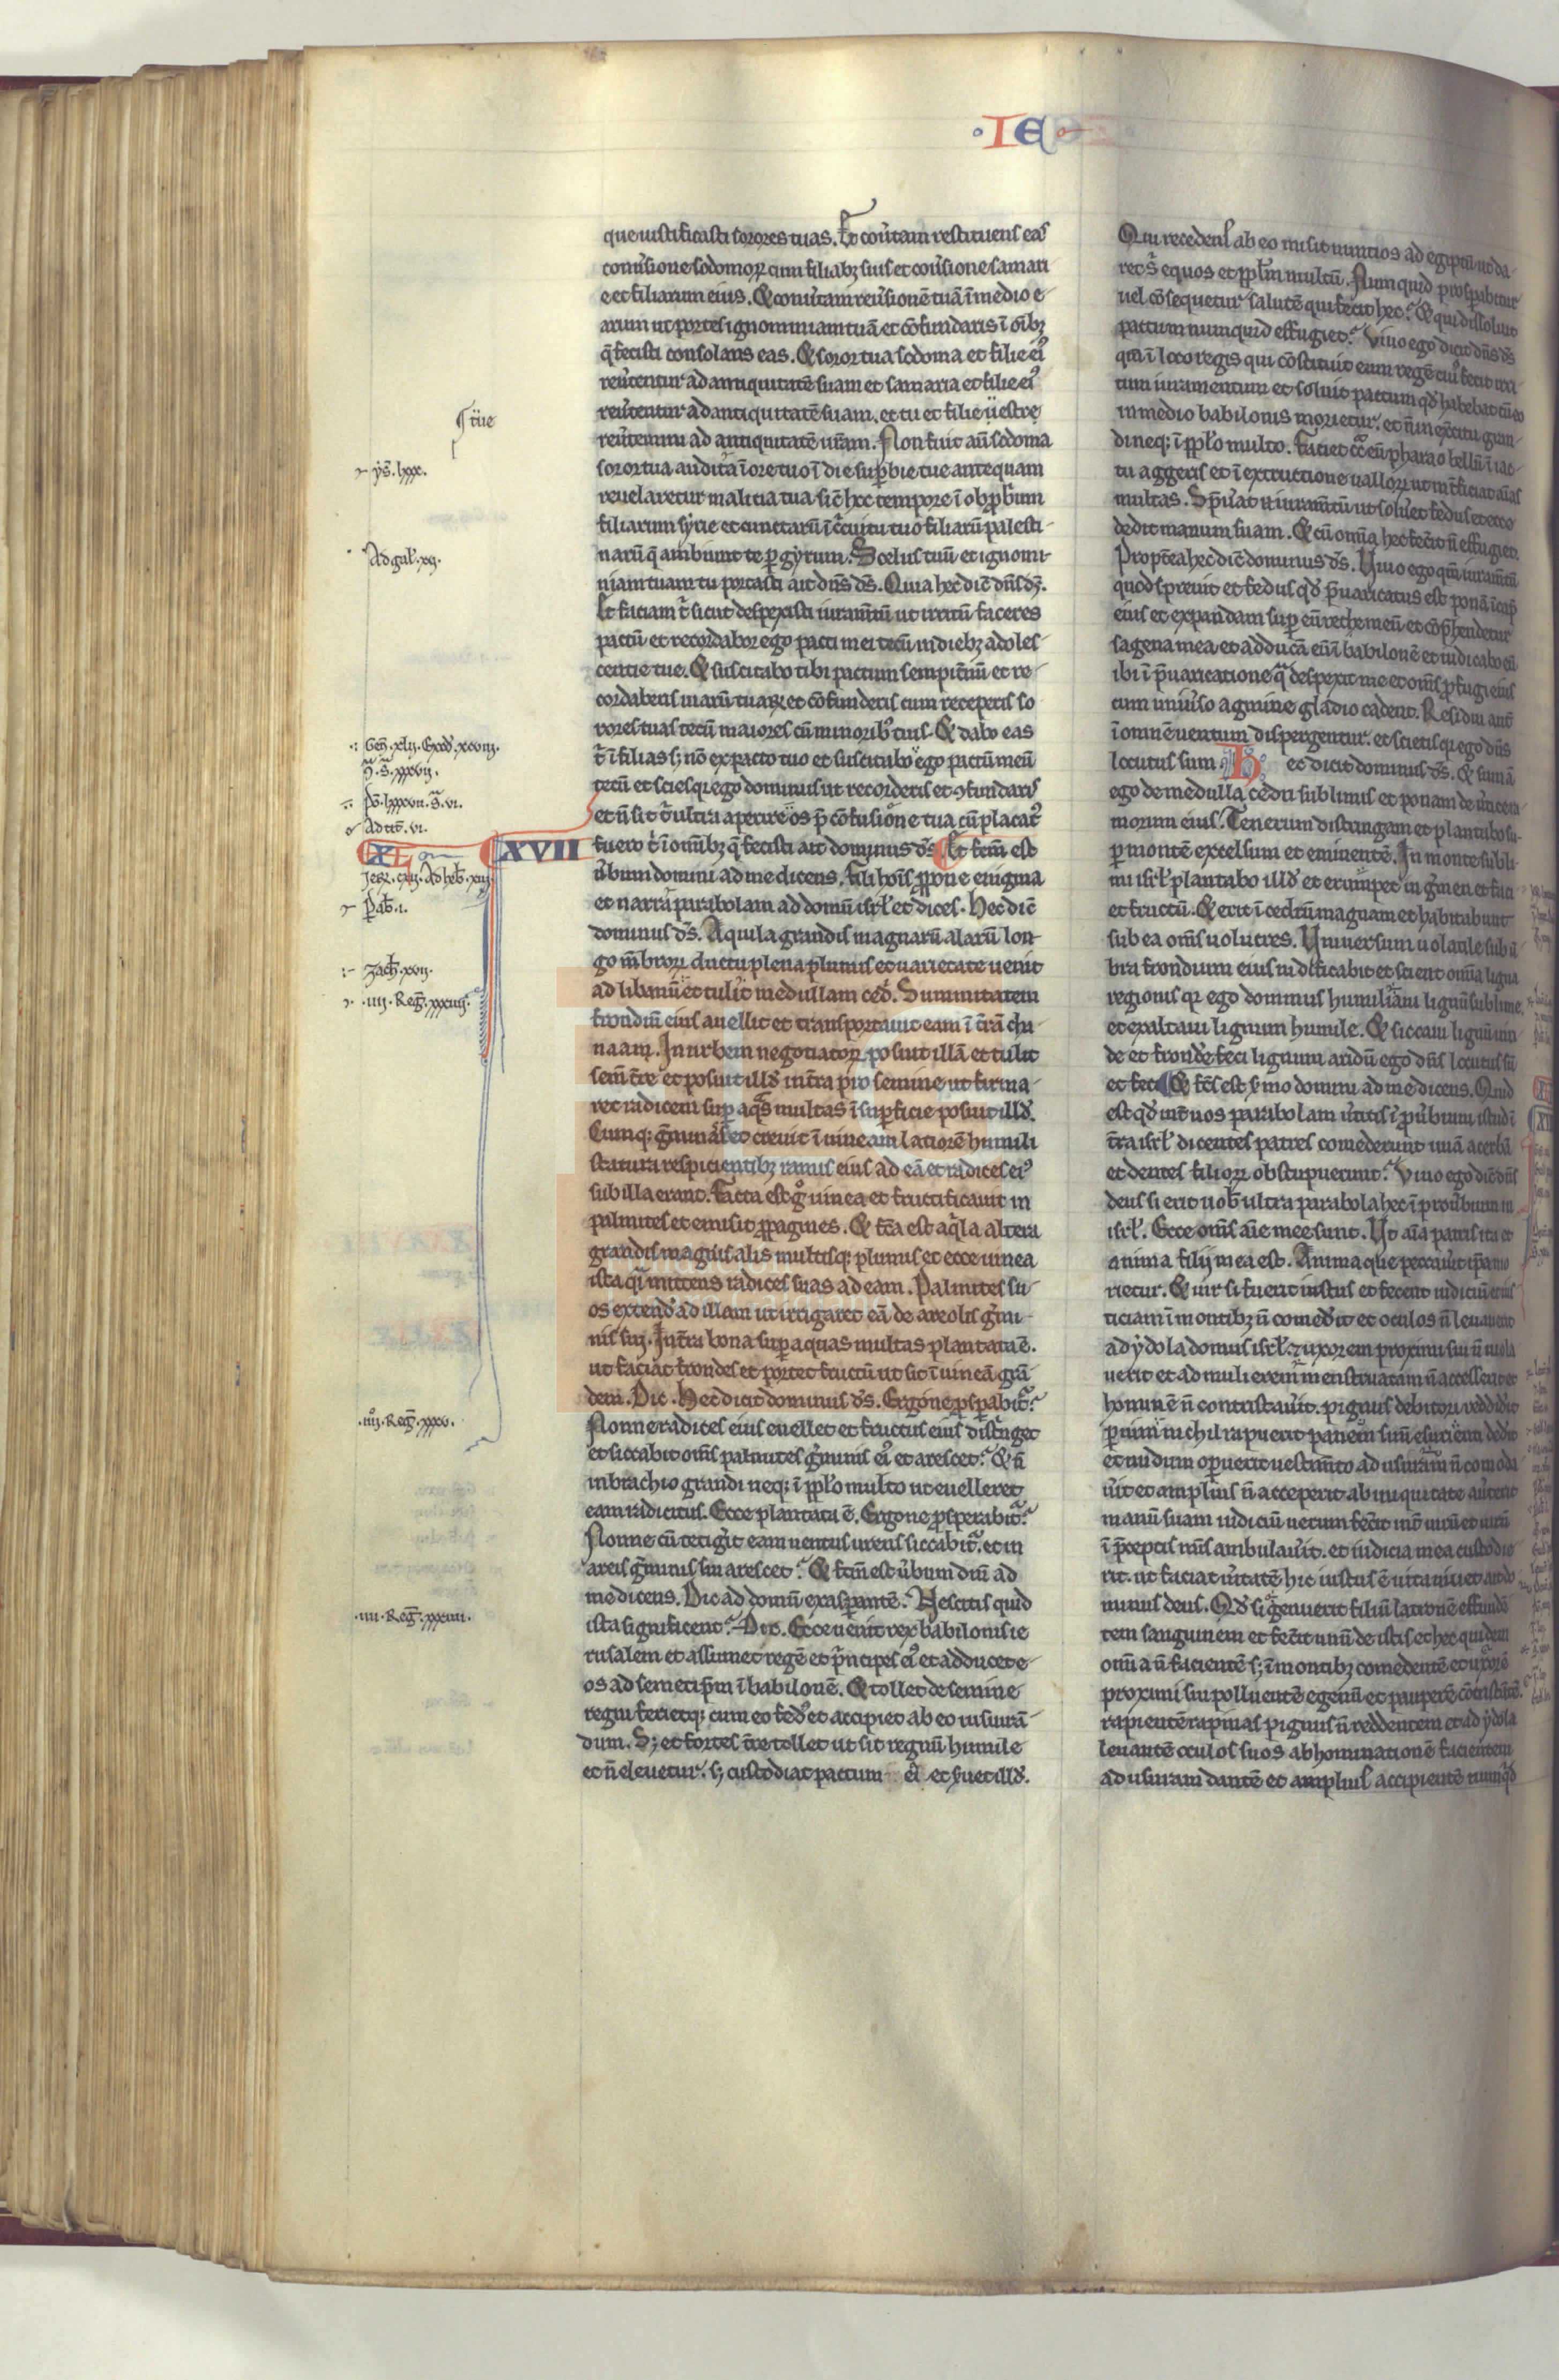 ·IE
que iustificasti sorores tuas. Et co͛utam restituens eas
con͛usione sodomoꝝ cum filiabꝫ suis et co͛usione samari
e et filiarum eius. Et con͛utam reu͛sionē tuā ī medio e-
arum ut portes ignominiam tuā et cōfundaris ī oībꝫ
q̄ fecisti consolans eas. Et soror tua sodoma et filie eiꝰ
reu͛tentur ad antiquitatē suam et samaria et filie eiꝰ
reu͛tentur ad antiquitatē suam. et tu et filie uestre
reu͛temini ad antiquitatē ur̄am. Non fuit aū sodoma
soror tua audita ī ore tuo ī die suꝑbie tue antequam
reuelaretur malicia tua sic̄ hoc tempore ī obꝓbr̄ium
filiarum syrie et cunctarū ī c̄cuitu tuo filiarū palesti-
narū q̄ ambiunt te ꝑ gyrum. Scelus tuū et ignomi-
niam tuam tu portasti ait dn̄s ds̄. Quia hec dic̄ dn̄s ds̄.
Et faciam t̄ sicut despexisti iuram̄tū ut irritū faceres
pactū et recordabor ego pacti mei tecū in diebꝫ adoles-
centie tue. Et suscitabo tibi pactum sempit̄nū et re-
cordaberis uiarū tuaꝝ et cōfunderis cum receperis so
rores tuas tecū maiores cū minoribꝰ tuis. Et dabo eas
t̄ ī filias sꝫ nō ex pacto tuo et suscitabo ego pactū meū
tecū et scies qꝫ ego dominus ut recorderis et ꝯfundaris
et n̄ sit t̄ ultra aperire os p̄ cōfusione tua cū placatꝰ
fuero t̄ ī omībꝫ q̄ fecisti ait dominus ds̄. Et fcm̄ est
u͛bum domini ad me dicens. Fili hoīs ꝓpone enigma
et narra parabolam ad domū isrl̄ et dices. Hec dic̄
dominus ds̄. Aquila grandis magnarū alarū lon-
go mēbroꝝ ductu plena plumis et uarietate uenit
ad libanū et tulit medullam ced͛. Summitatem
frondiū eius auellit et transportauit eam ī t̄rā cha-
naam. In urbem negotiatoꝝ posuit illā et tulit
sem̄ t̄re et posuit illd̄ in t̄ra pro semine ut firma-
ret radicem suꝑ aq̄s multas ī suꝑficie posuit illd̄.
Cumqꝫ g͛minasset creuit ī uineam latiorē humili
statura respicientibꝫ ramis eius ad eā et radices eiꝰ
sub illa erant. Facta est g° uinea et fructificauit in
palmites et emisit ꝓpagines. Et fc̄a est aq̄la altera
grandis magnis alis multisqꝫ plumis et ecce uinea
ista q̄ī mittens radices suas ad eam. Palmites su-
os extend͛ ad illam ut irrigaret eā de areolis g͛mi-
nis sui. In t̄ra bona suꝑ aquas multas plantata ē.
ut faciat frondes et portet fructū ut sit ī uineā grā
dem. Dic. Hec dicit dominus ds̄. Ergone ꝓsꝑabit͛.
Nonne radices eius euellet et fructus eius dist̄nget
et siccabit om̄s palmites g͛minis eiꝰ et arescet. Et n̄
in brachio grandi neqꝫ ī ppl̄o multo ut euelleret
eam radicitus. Ecce plantata ē. Ergone ꝓsperabit͛.
Nonne cū tetig͛it eam uentus urens siccabit͛. et in
areis g͛minis sui arescet. Et fcm̄ est u͛bum dn̄i ad
me dicens. Dic ad domū exasꝑantē. Nescitis quid
ista significent. Dic. Ecce uenit rex babilonis ie
rusalem et assumet regē et p̄ncipes eiꝰ et adducet e-
os ad semetip̄m ī babilonē. Et tollet de semine
regni ferietqꝫ cum eo fed͛ et accipiet ab eo iusiurā-
dum. Sꝫ et fortes t̄re tollet ut sit regnū humile
et n̄ eleuetur. sꝫ custodiat pactum ei et s͛uet illd̄.
Qui recedens ab eo misit nuntios ad egiptū ut da-
ret s̄ equos et ppl̄m multū. Numquid prosꝑabitur
uel cōsequetur salutē qui fecit hec. Et qui dissoluit
pactum numquid effugiet. Viuo ego dicit dn̄s ds̄
qm̄ ī loco regis qui cōstituit eum regē cuiꝰ fecit irri
tum iuramentum et soluit pactum qd̄ habebat cū eo
in medio babilonis morietur. et n̄ in ex͛citu gran-
di neqꝫ ī ppl̄o multo. Faciet cᵃ eū pharao bellū ī iac-
tu aggeris et ī extructione ualloꝝ ut int͛ficiat aīas
multas. Sp̄uerat n̄ iuram̄tū ut solu͛et fedus et ecce
dedit manum suam. Et cū omīa hec fec͛it n̄ effugiet.
Propt͛ea hec dic̄ dominus ds̄. Viuo ego qm̄ iuram̄tū
quod spreuit et fedus qd̄ p̄uaricatus est ponā ī cap̄
eius et expandam suꝑ eū rethe meū et cōp̄hendetur
sagena mea et adducā eū ī babilonē et iudicabo eū
ibi ī p̄uaricatione q̄ despexit me et om̄s ꝓfugi eius
cum uniu͛so agmine gladio cadent. Residui aut̄
ī omnē uentum dispergentur. et scietis qꝫ ego dn̄s
locutus sum. Hec dicit dominus ds̄. Et sumā
ego de medulla cedri sublimis et ponam de u͛tice ra-
morum eius. Tenerum distringam et plantabo su-
ꝑ montē excelsum et eminentē. In monte subli-
mi isrl̄ plantabo illd̄ et erumpet in g͛men et faci
et fructū. Et erit ī cedrū magnam et habitabunt
sub ea om̄s uolucres. Uniuersum uolatile sub ū
bra frondium eius nidificabit et scient omīa ligna
regionis qꝫ ego dominus humiliaui lignū sublime.
et exaltaui lignum humile. Et siccaui lignū uiri
de et frond͛e feci lignum aridū ego dn̄s locutus sū
et feci. Et fcs̄ est s͛mo domini ad me dicens. Quid
est qd̄ int͛ uos parabolam u͛titis ī ꝓu͛bium istud ī
t̄ra isrl̄ dicentes patres comederunt uuā acerbā
et dentes filioꝝ obstupuerunt. Viuo ego dic̄ dn̄s
deus si erit uob̄ ultra parabola hec ī prou͛bium in
isrl̄. Ecce om̄s aīe mee sunt. Ut aīa patris ita et
anima filij mea est. Anima que peccau͛it ip̄a mo
rietur. Et uir si fuerit iustus et fecerit iudiciū et ius
ticiam ī montibꝫ n̄ comed͛it et oculos n̄ leuauerit
ad ydola domus isrl̄. ⁊ uxorem proximi sui n̄ uiola
uerit et ad mulierem menstruatam n̄ accesserit et
hominē n̄ contristau͛it. pignus debitori reddid͛it
ꝑ uim nichil rapuerit panem suū esurienti ded͛it
et nudum oꝑuerit uestim̄to ad usuram n̄ comoda
u͛it et amplius n̄ acceperit ab iniquitate au͛terit
manū suam iudiciū uerum fec͛it int͛ uirū et uirū
ī p̄ceptis meis ambulau͛it. et iudicia mea custodie
rit. ut faciat u͛itatē hic iustus ē uita uiuet ait do
minus deus. Qd̄ si genuerit filiū latronē effundē
tem sanguinem et fec͛it unū de istis et hec quidem
omīa n̄ facientē sꝫ ī montibꝫ comedentē et uxorē
proximi sui polluentē egenū et pauperē cōtristātē.
rapientē rapinas pignus n̄ reddentem et ad ydola
leuantē oculos suos abhominationē facientem
ad usuram dantē et amplius accipientē numq̄d
¶ tue
ys̄. lxxx.
Ad gal̄. xij.
Gen̄. xlij. Exod̄. xxviij.
S̄. xxxvij.
Ps̄. lxxxvij. S̄. vi.
Ad tit̄. vi.
XL
XVII
Jer̄. cxij. Ad heb̄. xiij.
Parab̄. i.
Zach̄. xvij.
.iiij. Reg̅. xxxiiij.
.iiij. Reg̅. xxxv.
.iiij. Reg̅. xxxiiij.